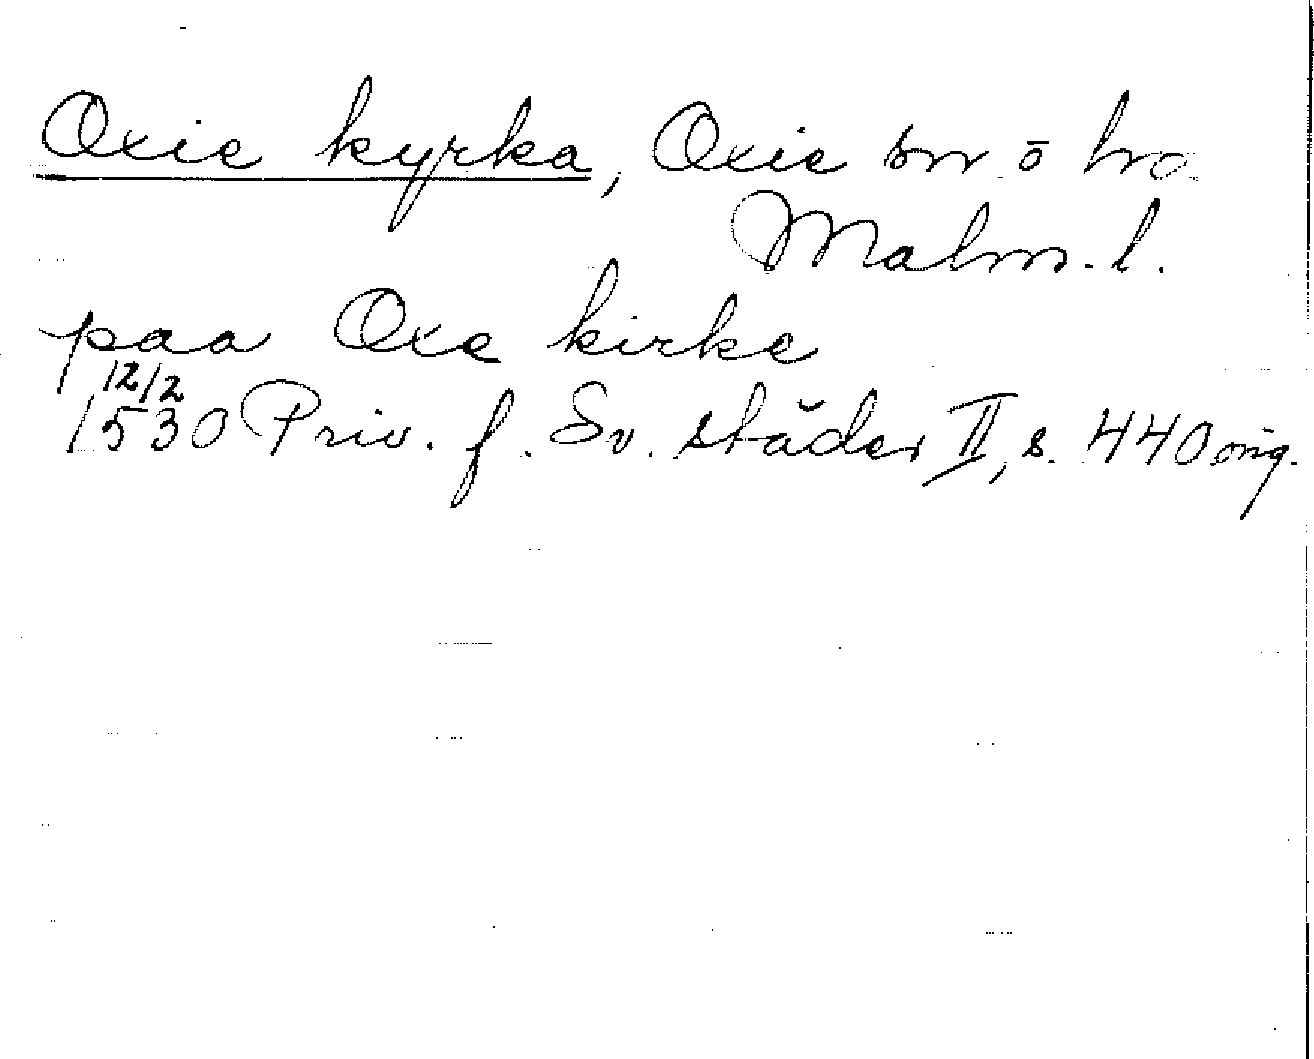 Oxie kyrka, Oxie sn o hd
Malm. l.
paa Oxe kirke
12/2
1530 Priv. f. Sv. städer II, s. 440 orig.